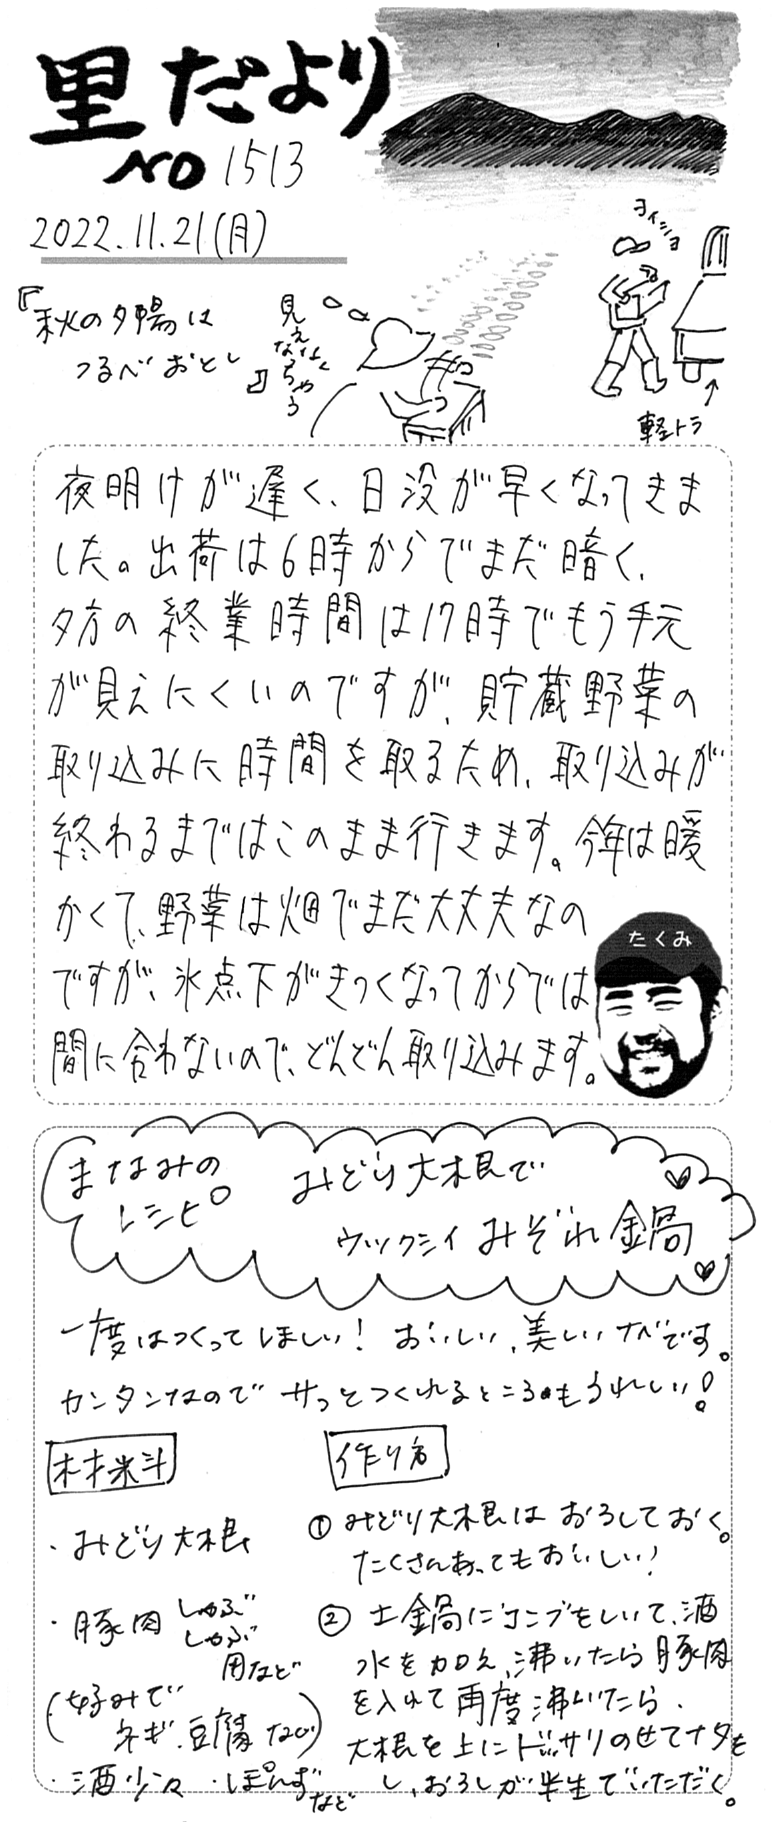 里だより
NO 1513
2022.11.21(月)
ヨイショ
『秋の夕陽は
つるべおとし』
見えなくなっちゃう
軽トラ
夜明けが遅く、日没が早くなってきま
した。出荷は6時からでまだ暗く、
夕方の終業時間は17時でもう手元
が見えにくいのですが、貯蔵野菜の
取り込みに時間を取るため、取り込みが
終わるまではこのまま行きます。今年は暖
かくて、野菜は畑でまだ大丈夫なの
ですが、氷点下がきつくなってからでは
間に合わないので、どんどん取り込みます。
たくみ
まなみの
レシピ
みどり大根で
ウックシイみぞれ鍋
一度はつくってほしい！おいしい、美しいナベです。
カンタンなので サッとつくれるところもうれしい！
材料
・みどり大根
・豚肉 しゃぶ
しゃぶ
用など
(好みで
ネギ、豆腐など)
・酒少々 ・ぽんずなど
作り方
① みどり大根は おろしておく。
たくさんあってもおいしい！
② 土鍋にコンブをしいて、酒
水を加え、沸いたら豚肉
を入れて再度沸いたら、
大根を上にドッサリのせてナタを
し、おろしが半生でいただく。